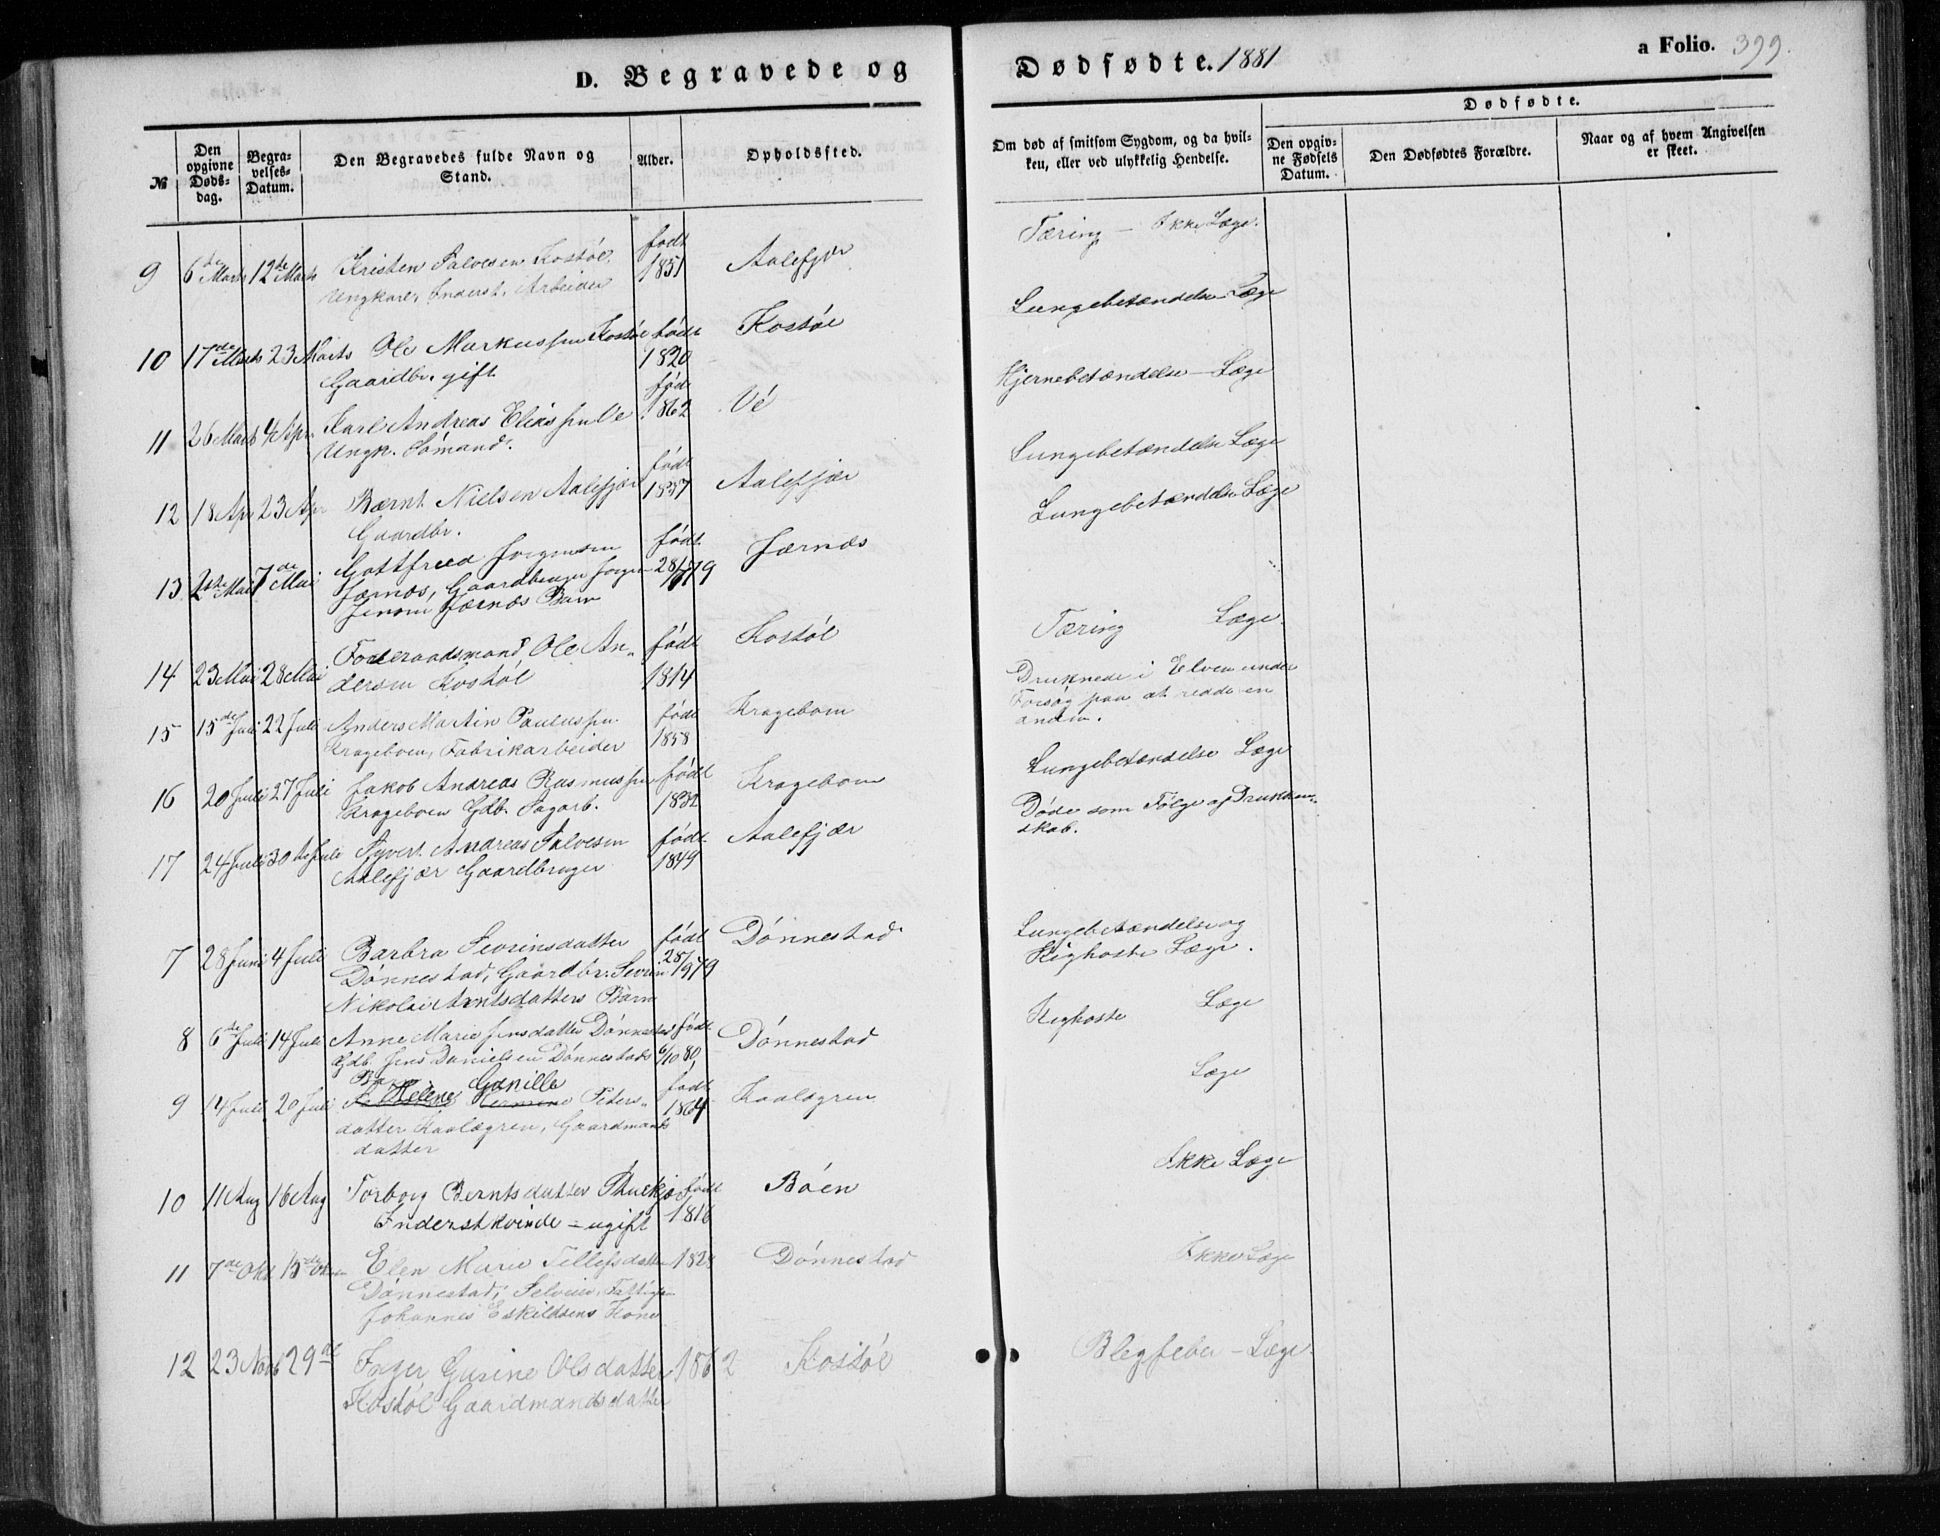 D. Begravede og Dødfødte. 1881
a Folio. 399.
№
Den opgivne Dødsdag.
Begravelses-Datum.
Den Begravedes fulde Navn og Stand.
Alder.
Opholdssted.
Om død af smitsom Sygdom, og da hvilken, eller ved ulykkelig Hendelse.
Dødfødte.
Den opgivne Fødsels Datum.
Den Dødfødtes Forældre.
Naar og af hvem Angivelsen er skeet.
9 6de Marts 12te Marts Kristen Salvesen Kostøl født Aalefjær Tæring – Ikke Læge.
Ungkarl, Inderst, Arbeider 1851
10 17de Marts 23 Marts Ole Markussen Kostøl født Kostøl Lungebetændelse Læge
Gaardbr. gift 1820
11 26 Marts 4 Apr. Karl Andreas Eliassen Ve fød Vé Hjernebetændelse – Læge
Ungk. Sømand. 1862
12 18 Apr 23 Apr Bernt Nielsen Aalefjær født 1837 Aalefjær Lungebetændelse Læge
Gaardbr.
13 2den Mai 7de Mai Gottfred Jorgensen født Jærnæs Lungebetændelse Læge
Jærnæs, Gaardbruger Jorgen 28/ 79
Jensens Jærnæs Barn
14 23 Mai 28 Mai Foderaadsmand Ole An- født Kostøl Tæring Læge.
dersen Kostøl 1814
15 15de Juli 22 Juli Anders Martin Paulussen født Krageboen Druknede i Elven under
Krageboen, Fabrikarbeider 1858 Forsøg paa at redde en
anden.
16 20 Juli 27 Juli Jakob Andreas Rasmussen født Krageboen Lungebetændelse Læge
Krageboen Gdb. Sagarb. 1832
17 24 Juli 30 Juli Syvert Andreas Salvesen født Aalefjær Døde som Følge af Drukken-
Aalefjær Gaardbruger 1849 skab.
7 28 Juni 4 Juli Barbra Sevrinsdatter født Dønnestad Lungebetændelse og
Dønnestad, Gaardbr. Sevrin 28/9 79 Kighoste Læge.
Nikolai Arntsdatters Barn
8 6de Juli 14 Juli Anne Marie Jensdatter Dønnestad født Dønnestad Kighoste Læge
Gdb. Jens Danielsen Dønnestads 6/10 80
Barn
9 14 Juli 20 Juli Helene Gunille Peters- født Kaalægren Læge
datter Kaalægren, Gaardmands 1864
datter
10 11 Aug 16 Aug Torborg Berntsdatter født Bøen Ikke Læge
Inderstkvinde – ugift 1816
11 7de Okt 15de Okt Elen Marie Tellefsdatter 182 Dønnestad Ikke Læge
Dønnestad,
Johannes Eskildsens Kone
12 23 Nov 29de Inger Gusine Olsdatter 1862 Kostøl Blegfeber – Læge.
Kostøl Gaardmandsdatter